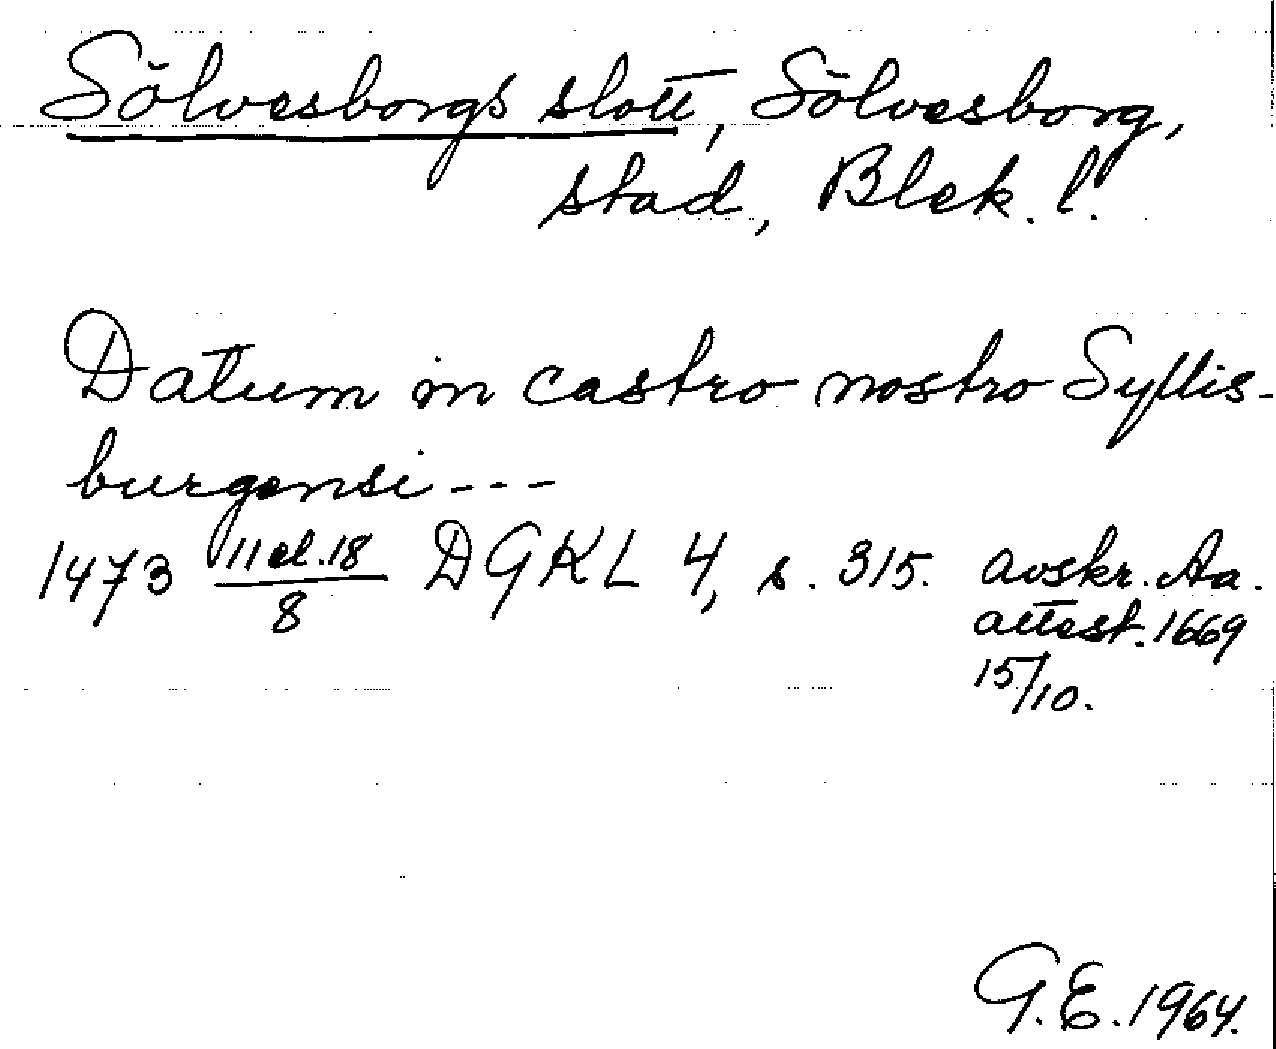 Sölvesborgs slott, Sölvesborg,
stad, Blek. l.
Datum in castro nostro Syllis-
burgensi ---
1473 11 el. 18/8 DGKL 4, s. 315. avskr. Aa.
attest. 1669
15/10.
G.E. 1964.